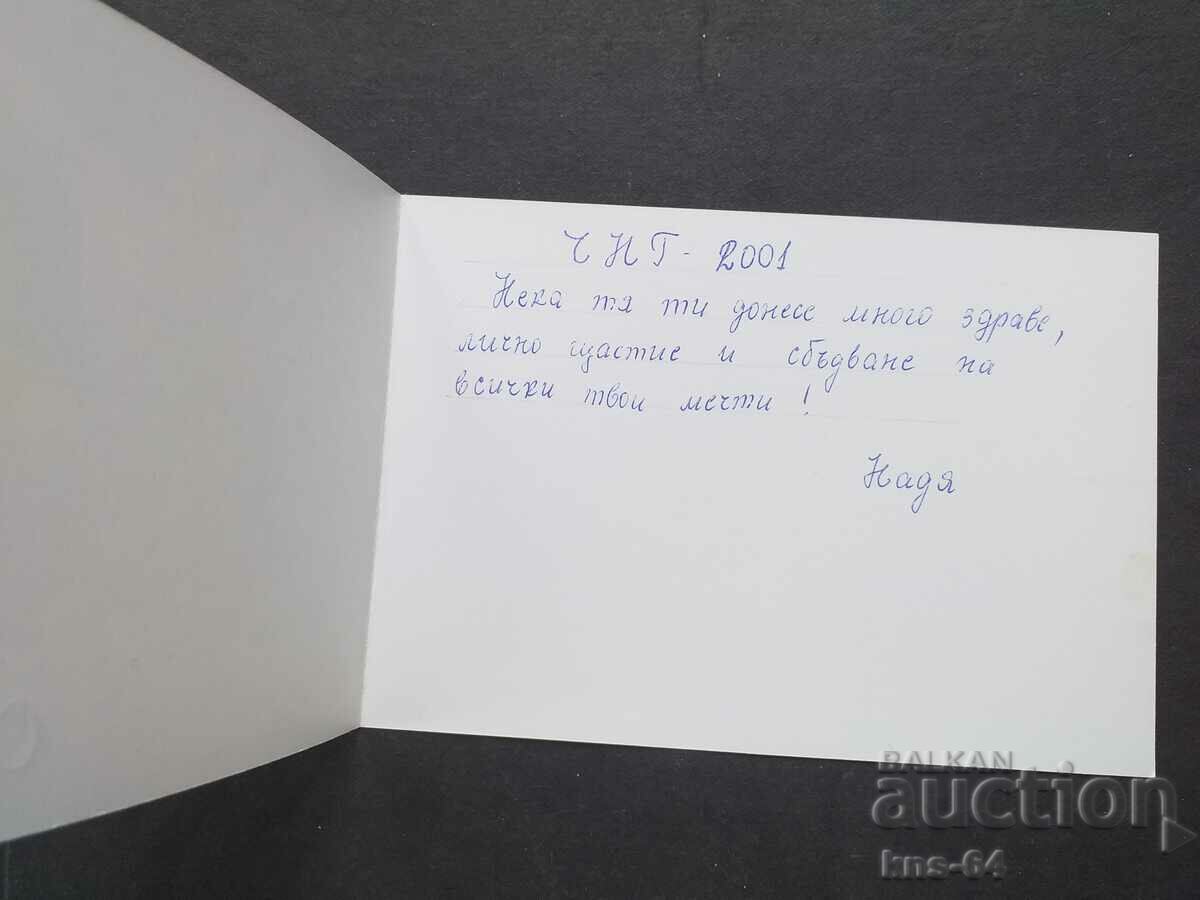 ЧНГ - 2001
Нека тя ти донесе много здраве,
лично щастие и сбъдване на
всички твои мечти !
Надя
BALKAN
auction
kns-64